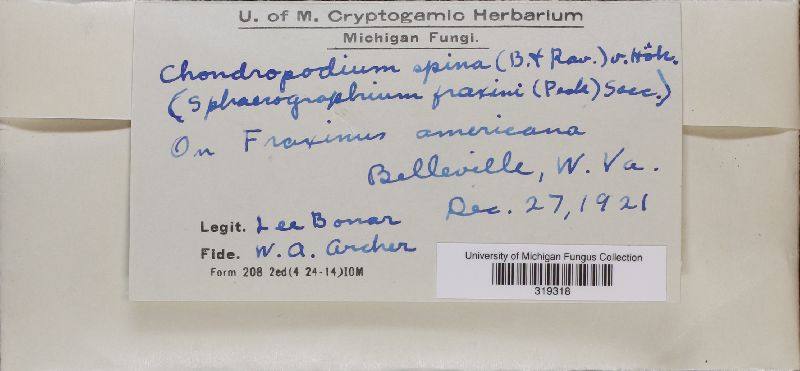 U. of M. Cryptogamic Herbarium
Michigan Fungi.
Chondropodium spina (B. & Rav.) v. Höh.
(Sphaerographium fraxini (Peck) Sacc.)
On Fraxinus americana
Belleville, W. Va.
Dec. 27, 1921
Legit. Lee Bonar
Fide. W. A. Archer
Form 208 2ed(4 24-14)10M
University of Michigan Fungus Collection
319316